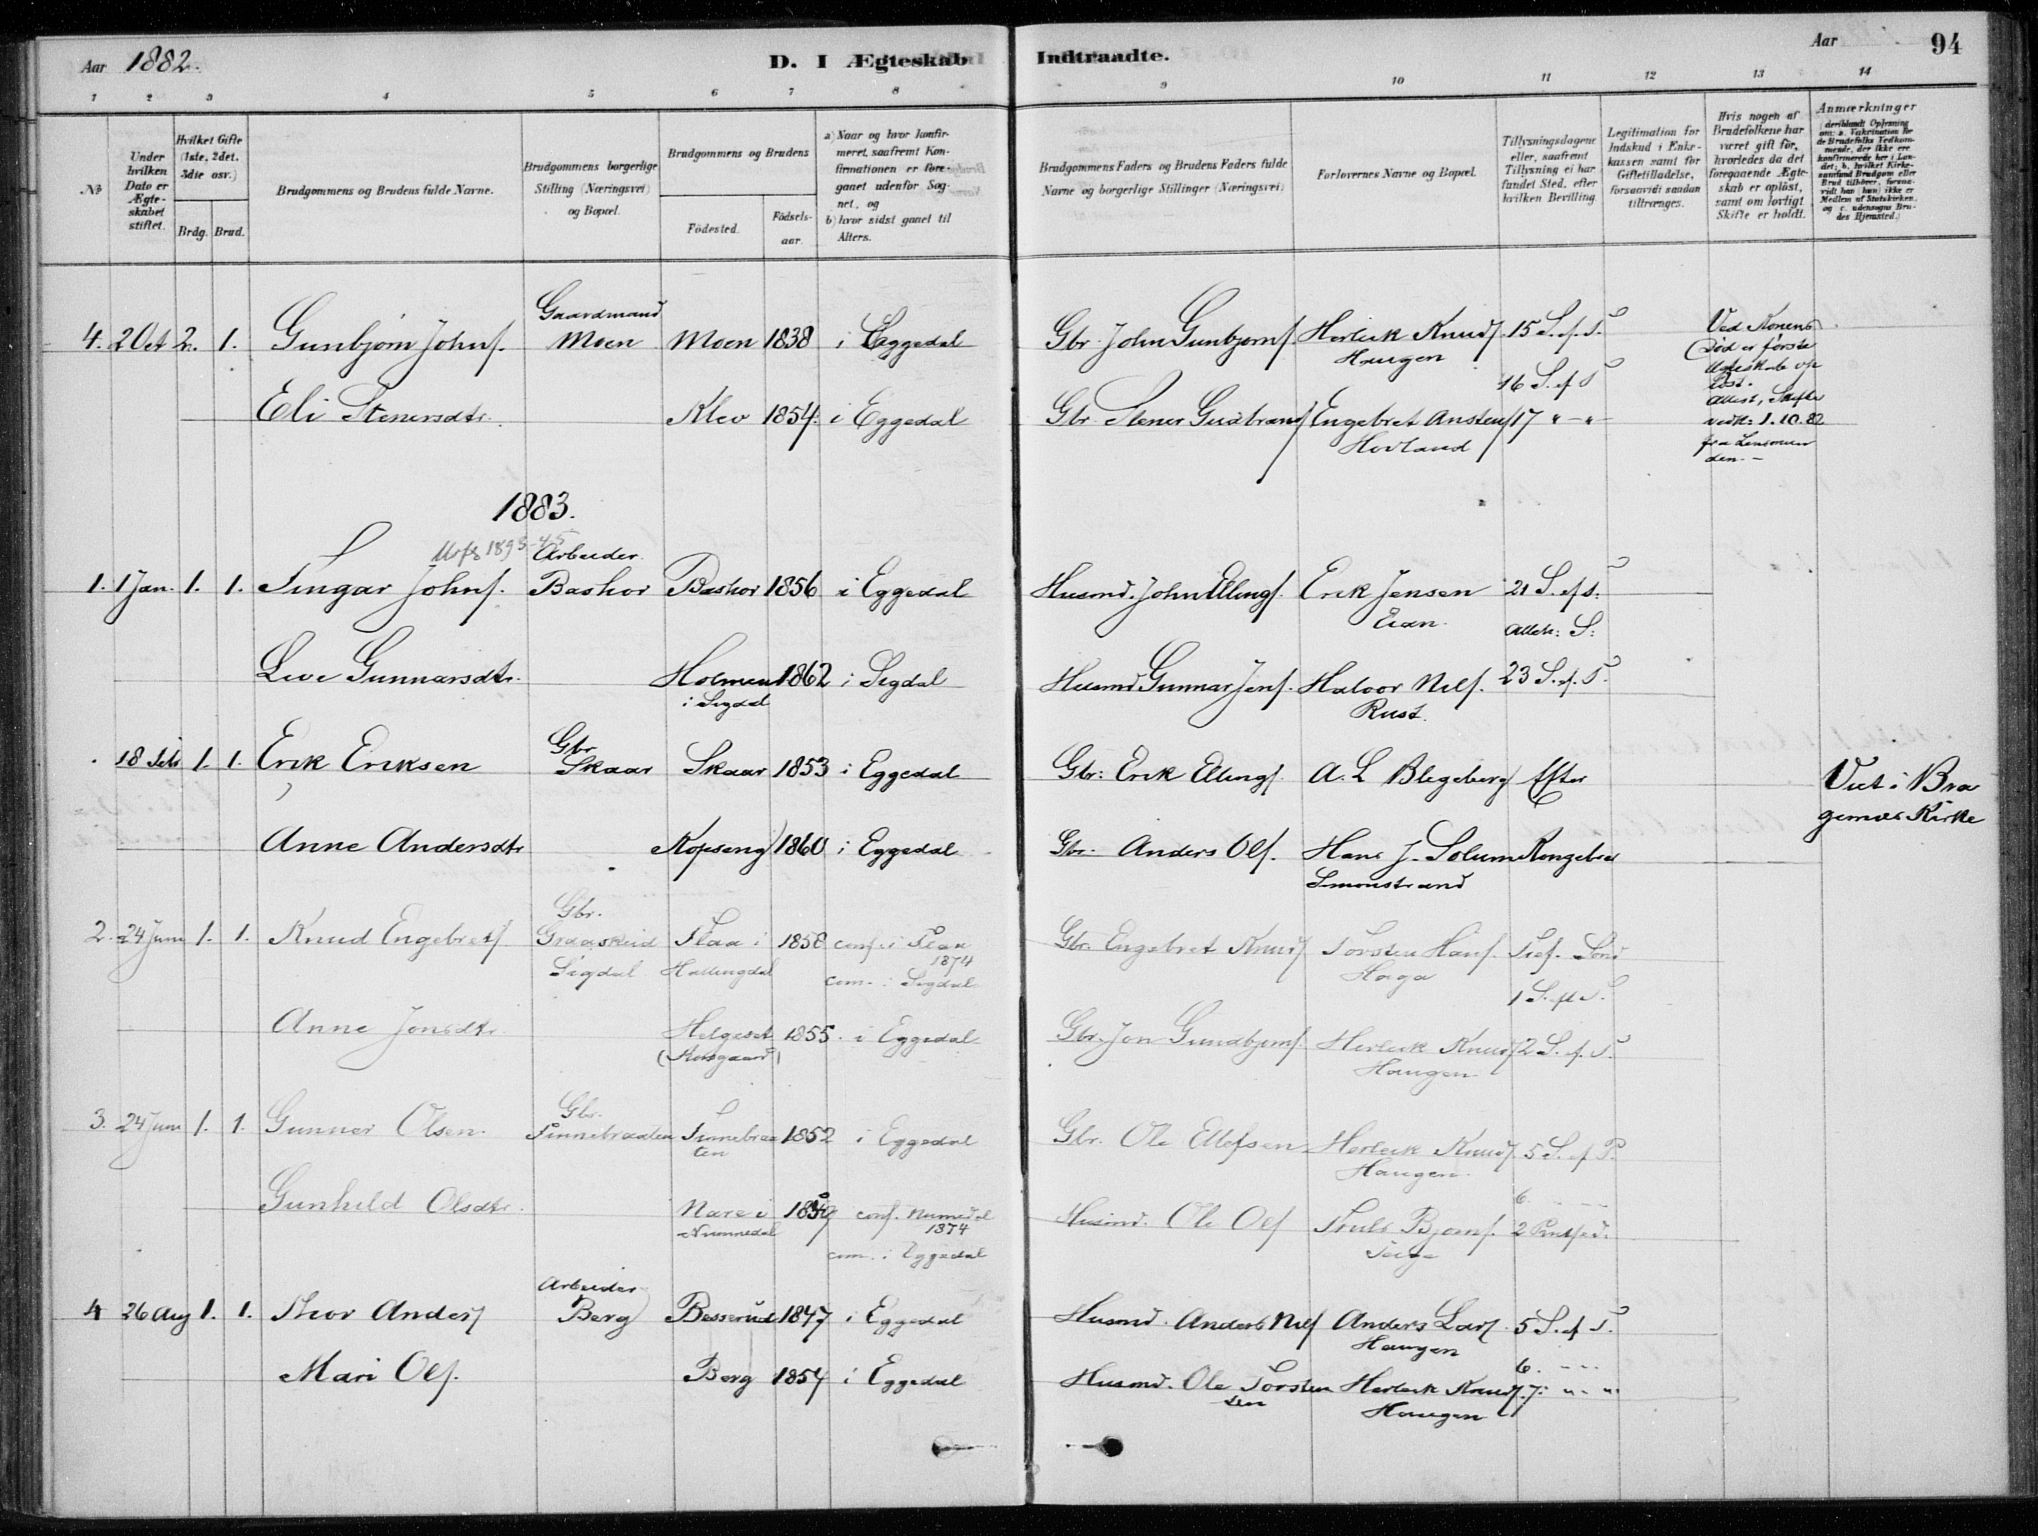 Aar 1882. D. I Ægteskab Indtraadte. Aar 94
1 2 3 4 5 6 7 8 9 10 11 12 13 14
No
Under hvilken Dato er Ægteskabet stiftet.
Hvilket Gifte (1ste, 2det, 3die osv.)
Brdg. Brud.
Brudgommens og Brudens fulde Navne.
Brudgommens borgerlige Stilling (Næringsvei) og Bopæl.
Brudgommens og Brudens
Fødested. Fødselsaar.
a) Naar og hvor konfirmeret, saafremt Konfirmationen er foregaaet udenfor Sognet, og
b) hvor sidst gaaet til Alters.
Brudgommens Faders og Brudens Faders fulde Navne og borgerlige Stillinger (Næringsvei)
Forlovernes Navne og Bopæl.
Tillysningsdagene eller, saafremt Tillysning ei har fundet Sted, efter hvilken Bevilling
Legitimation for Indskud i Enkekassen samt for Giftetilladelse, forsaavidt saadan tiltrænges.
Hvis nogen af Brudefolkene har været gift før, hvorledes da det foregaaende Ægteskab er opløst, samt om lovligt Skifte er holdt.
Anmærkninger
Gaardmand
4. 2 Oct 2. 1. Gunbjørn Johns. Moen Moen 1838 i Eggedal Gbr. John Gunbjørns. Herleik Knuds. 15 S. e. T.
Haugen
Ved Konens Død er første
16 S. ef T
Eli Stenersdtr. Klev 1854. i Eggedal Gbr Stener Gudbrands Engebret Anstens 17 " - "
Hovland
vedk: 1.10.82
fra Lensmanden. -
1883.
Arbeider
1. 1 Jan. 1. 1. Tingar Johns. Bashor Bashor 1856 i Eggedal Husmd. John Ellings. Erik Jensen 21 S. ef T:
Eian.
Live Gunnarsdtr. Holmen 1862 i Sigdal Husmd Gunnar Jens. Halvor Nils. 23 S. e. T.
i Sigdal
Rust.
Gbr
18 1. 1. Erik Eriksen Skaar Skaar 1853 i Eggedal Gbr: Erik Ellings. A. L Blegeberg Efter
Viet i Bragernes Kirke
Anne Andersdtr Kopseng 1860 i Eggedal Gbr. Anders Ols. Hans J. Solum Kongebrev
Smonstrand
Gbr.
2. 24 Juni 1. 1. Knud Engebrets. Graaskeid Flaa i 1858 conf. i Flaa Gbr. Engebret Knuds Torsten Hans.
Sigdal Hallingdal 1874
com. i Sigdal
Haga
1 S. ef T.
Anne Jonsdtr. Helgeset 1855. i Eggedal Gbr. Jon Gundbjørns. Herleik Knuds 2 S. e. T.
Haugen
Gbr.
3. 24 Juni 1. 1. Gunnar Olsen. Tinnebraaten Tinnebraaten 1852 i Eggedal Gbr. Ole Ellefsen Herleik Knuds. 5 S. ef P.
Haugen.
6. - - -
Gunhild Olsdtr. Nore i conf. Numedal Husmd. Ole Ols Truls Bjørns.
Nummedal 1874
com. i Eggedal
Arbeider
4 26 Aug 1. 1. Thor Anders Berg Besserud 1847 i Eggedal Husmd. Anders Nils Anders Lars. 5 S. ef T.
Haugen
6. - - -
Mari Ols. Berg 1854 i Eggedal Husmd. Ole Torstensen Herleik Knuds. 7. " - "
Haugen